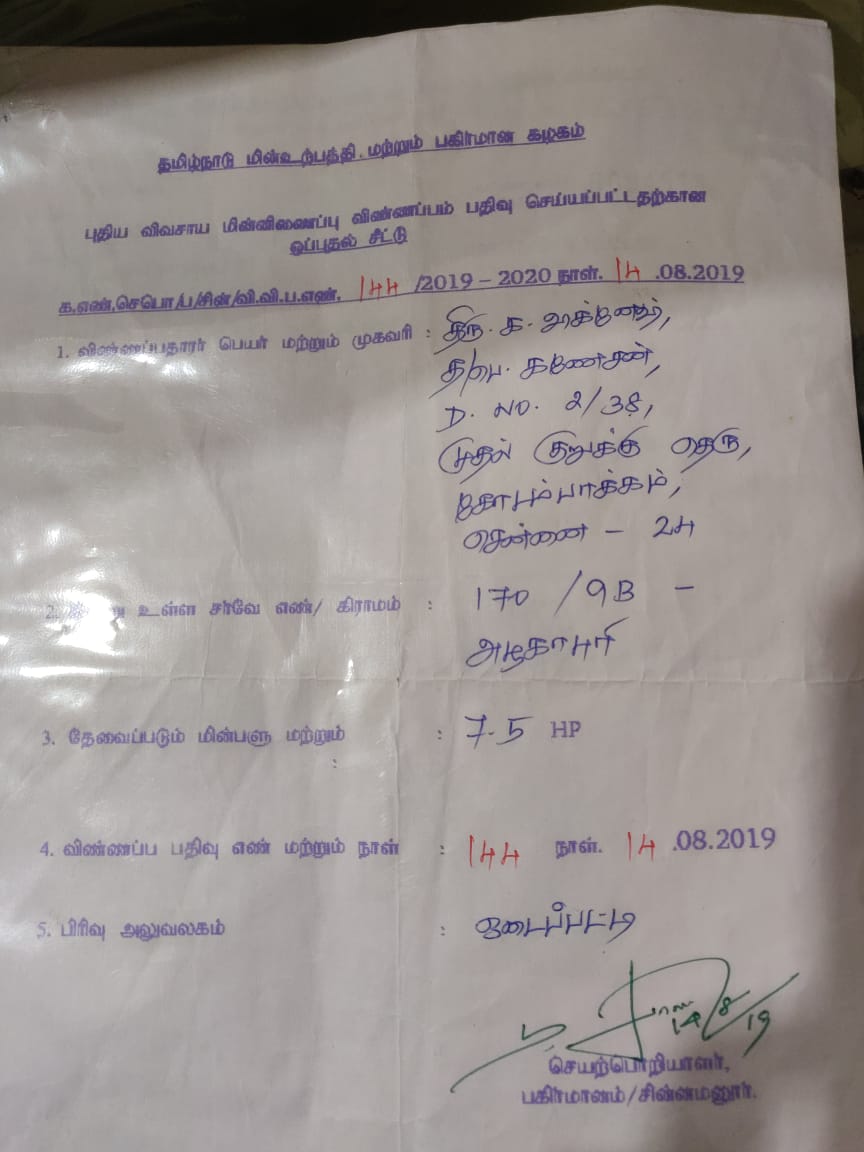 தமிழ்நாடு மின்உற்பத்தி மற்றும் பகிர்மான கழகம்
புதிய விவசாய மின்னிணைப்பு விண்ணப்பம் பதிவு செய்யப்பட்டதற்கான
ஒப்புதல் சீட்டு
க.எண்.செபொ/ப/சின்/வி.வி.ப.எண். 144 /2019 – 2020 நாள். 14 .08.2019
1. விண்ணப்பதாரர் பெயர் மற்றும் முகவரி : திரு. க.
த/பெ. கணேசன்,
D. NO. 2/38,
முதல் குறுக்கு தெரு,
கோடம்பாக்கம்,
சென்னை – 24
2. உள்ள சர்வே எண்/ கிராமம் : 170 / 9B –
அழகாபுரி
3. தேவைப்படும் மின்பளு மற்றும் : 7.5 HP
:
4. விண்ணப்ப பதிவு எண் மற்றும் நாள் : 144 நாள். 14 .08.2019
5. பிரிவு அலுவலகம் : ஓடைப்பட்டி
14/8/19
செயற்பொறியாளர்,
பகிர்மானம்/சின்னமனூர்.